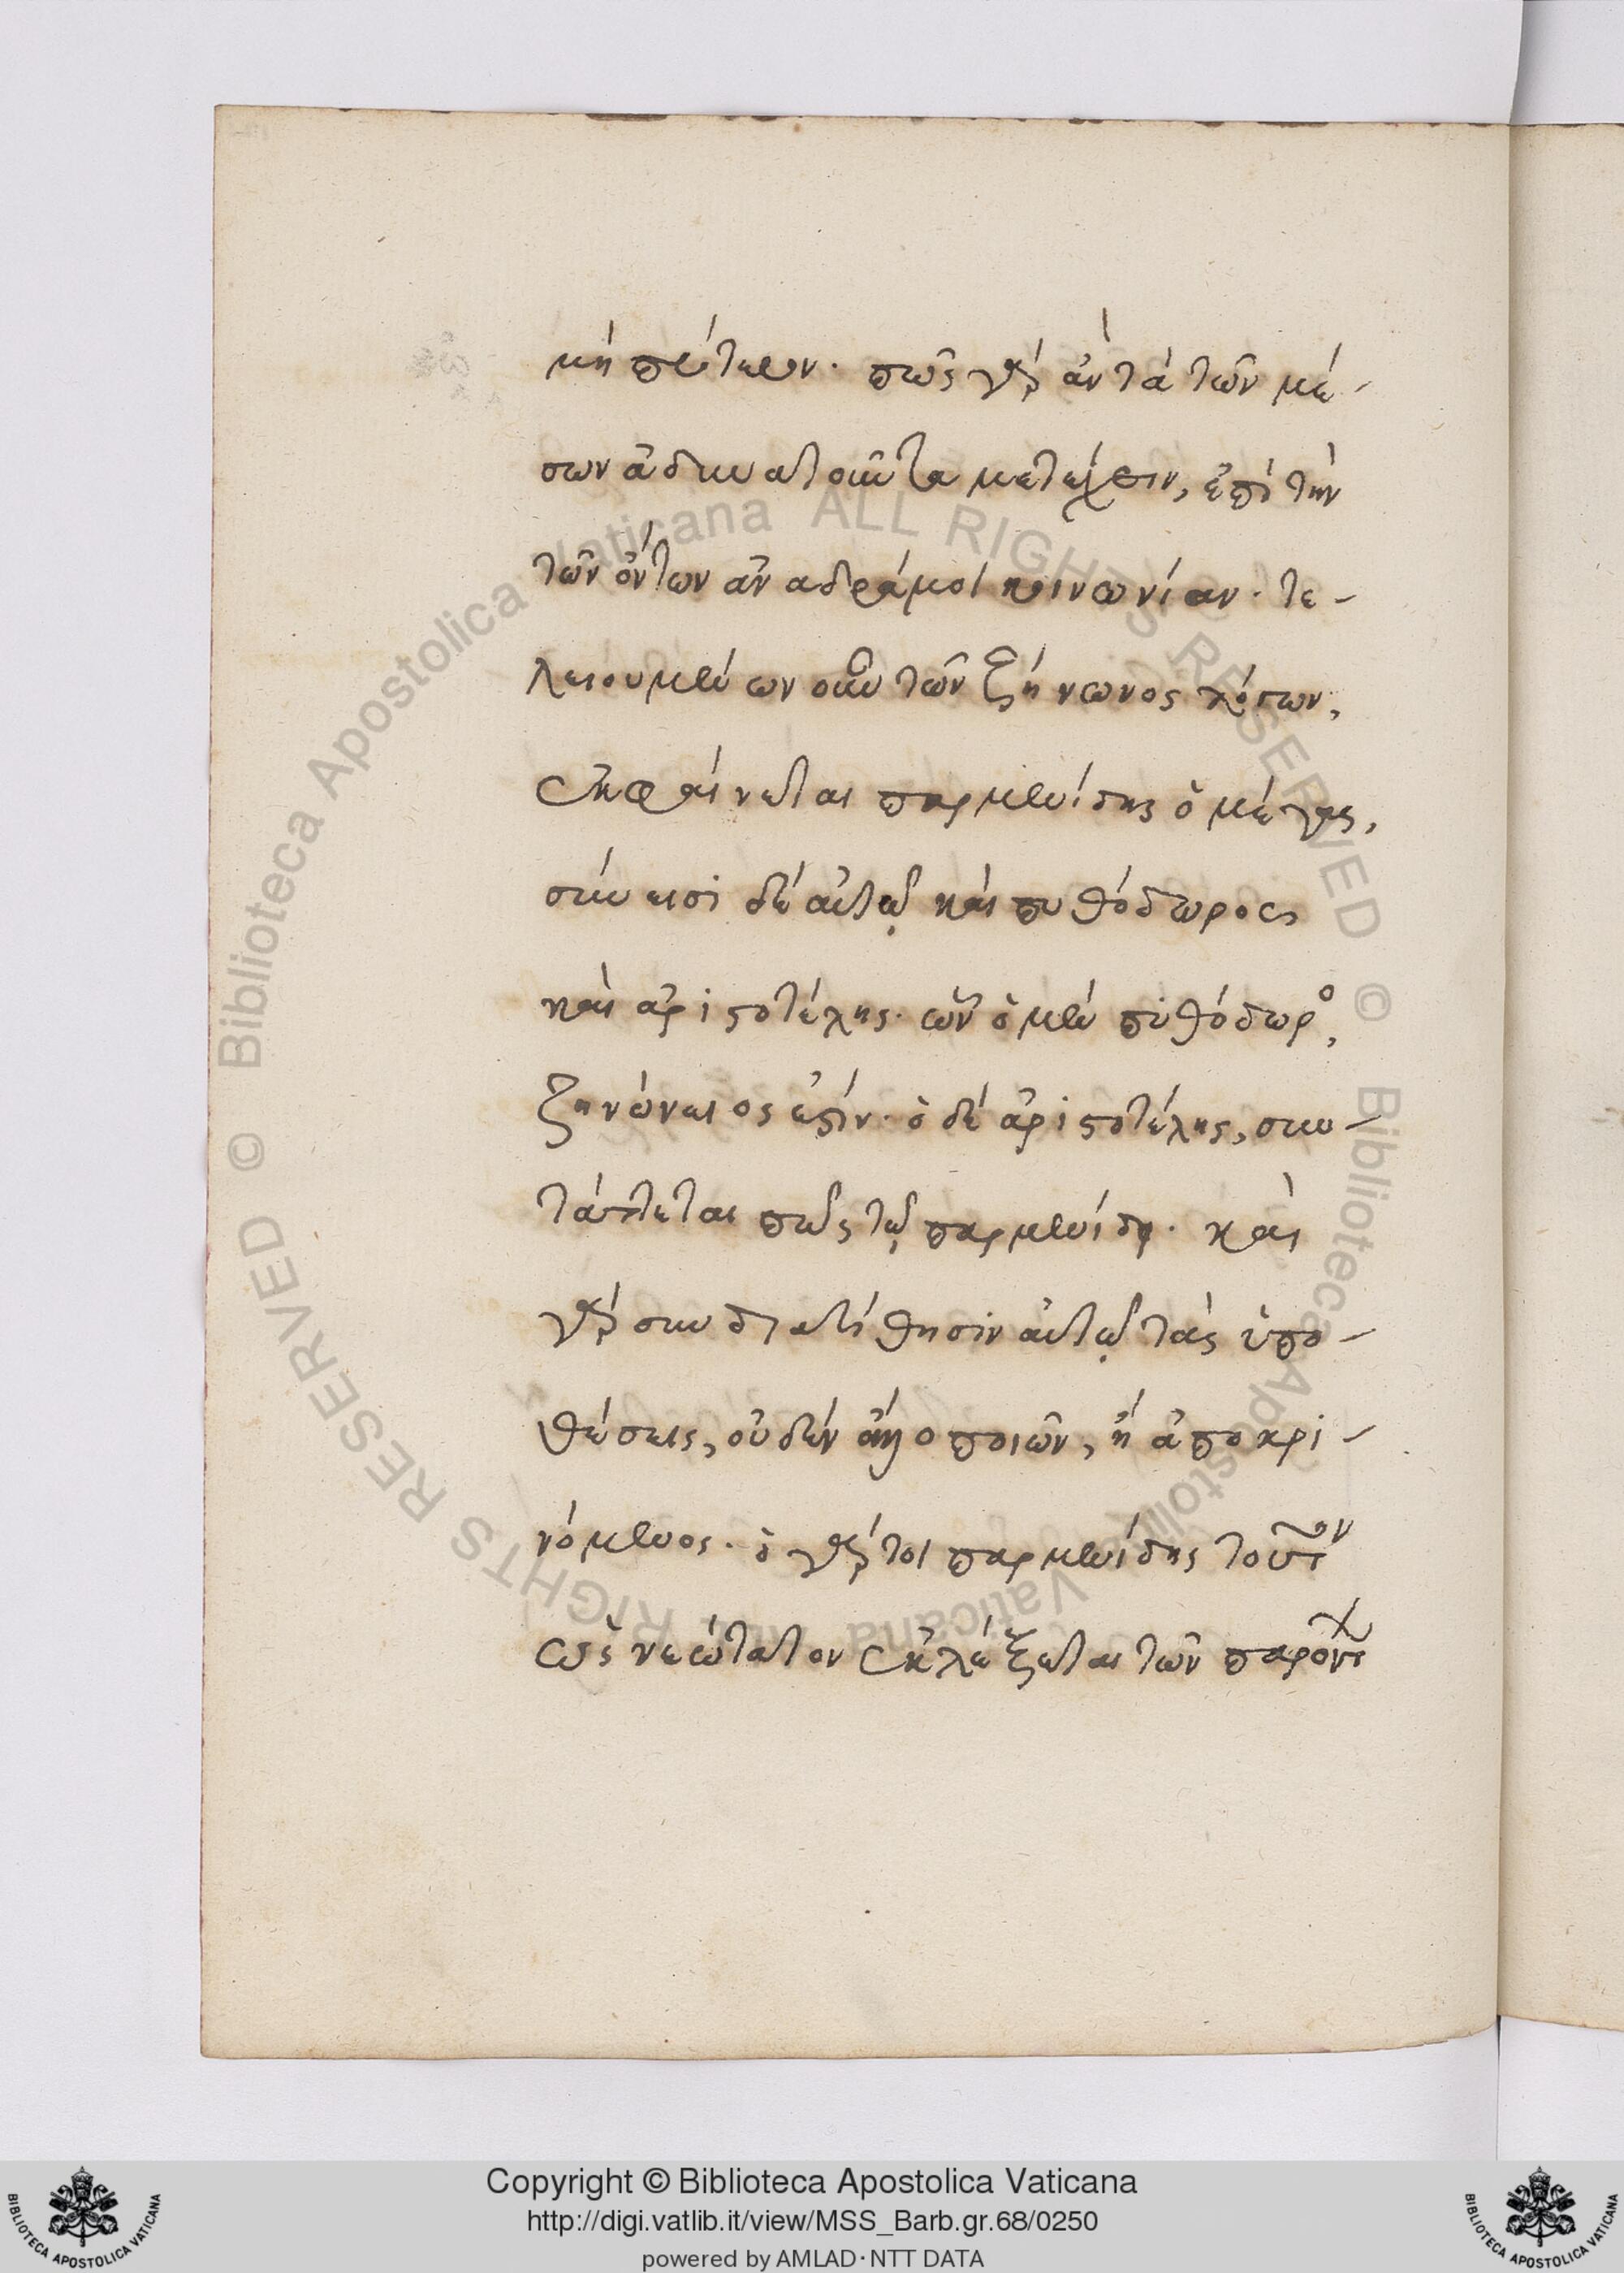 μὴ πρότερον. πῶς γὰρ ἂν τὰ τῶν μέ-
σων ἀδυνατοῦντα μετέχειν, ἐπὶ τὴν
τῶν ὄντων ἀναδράμοι κοινωνίαν. τε-
λειουμένων οὖν τῶν ζήνωνος λόγων,
ἐκφαίνεται παρμενίδης ὁ μέγας,
σύνεισι δὲ αὐτῷ καὶ πυθόδωρος
καὶ ἀριστοτέλης. ὧν ὁ μὲν πυθόδωρος,
ζηνώνειός ἐστιν. ὁ δὲ ἀριστοτέλης, συν-
τάττεται πως τῷ παρμενίδῃ. καὶ
γὰρ συνδιατίθησιν αὐτῷ τὰς ὑπο-
θέσεις, οὐδὲν ἄλλο ποιῶν, ἢ ἀποκρι-
νόμενος. ὁ γάρ τοι παρμενίδης τοῦτον
ὡς νεώτατον ἐκλέξεται τῶν παρόντων
Copyright © Biblioteca Apostolica Vaticana
http://digi.vatlib.it/view/MSS_Barb.gr.68/0250
powered by AMLAD·NTT DATA
© Biblioteca Apostolica Vaticana ALL RIGHTS RESERVED © Biblioteca Apostolica Vaticana ALL RIGHTS RESERVED
BIBLIOTECA APOSTOLICA VATICANA
BIBLIOTECA APOSTOLICA VATICANA